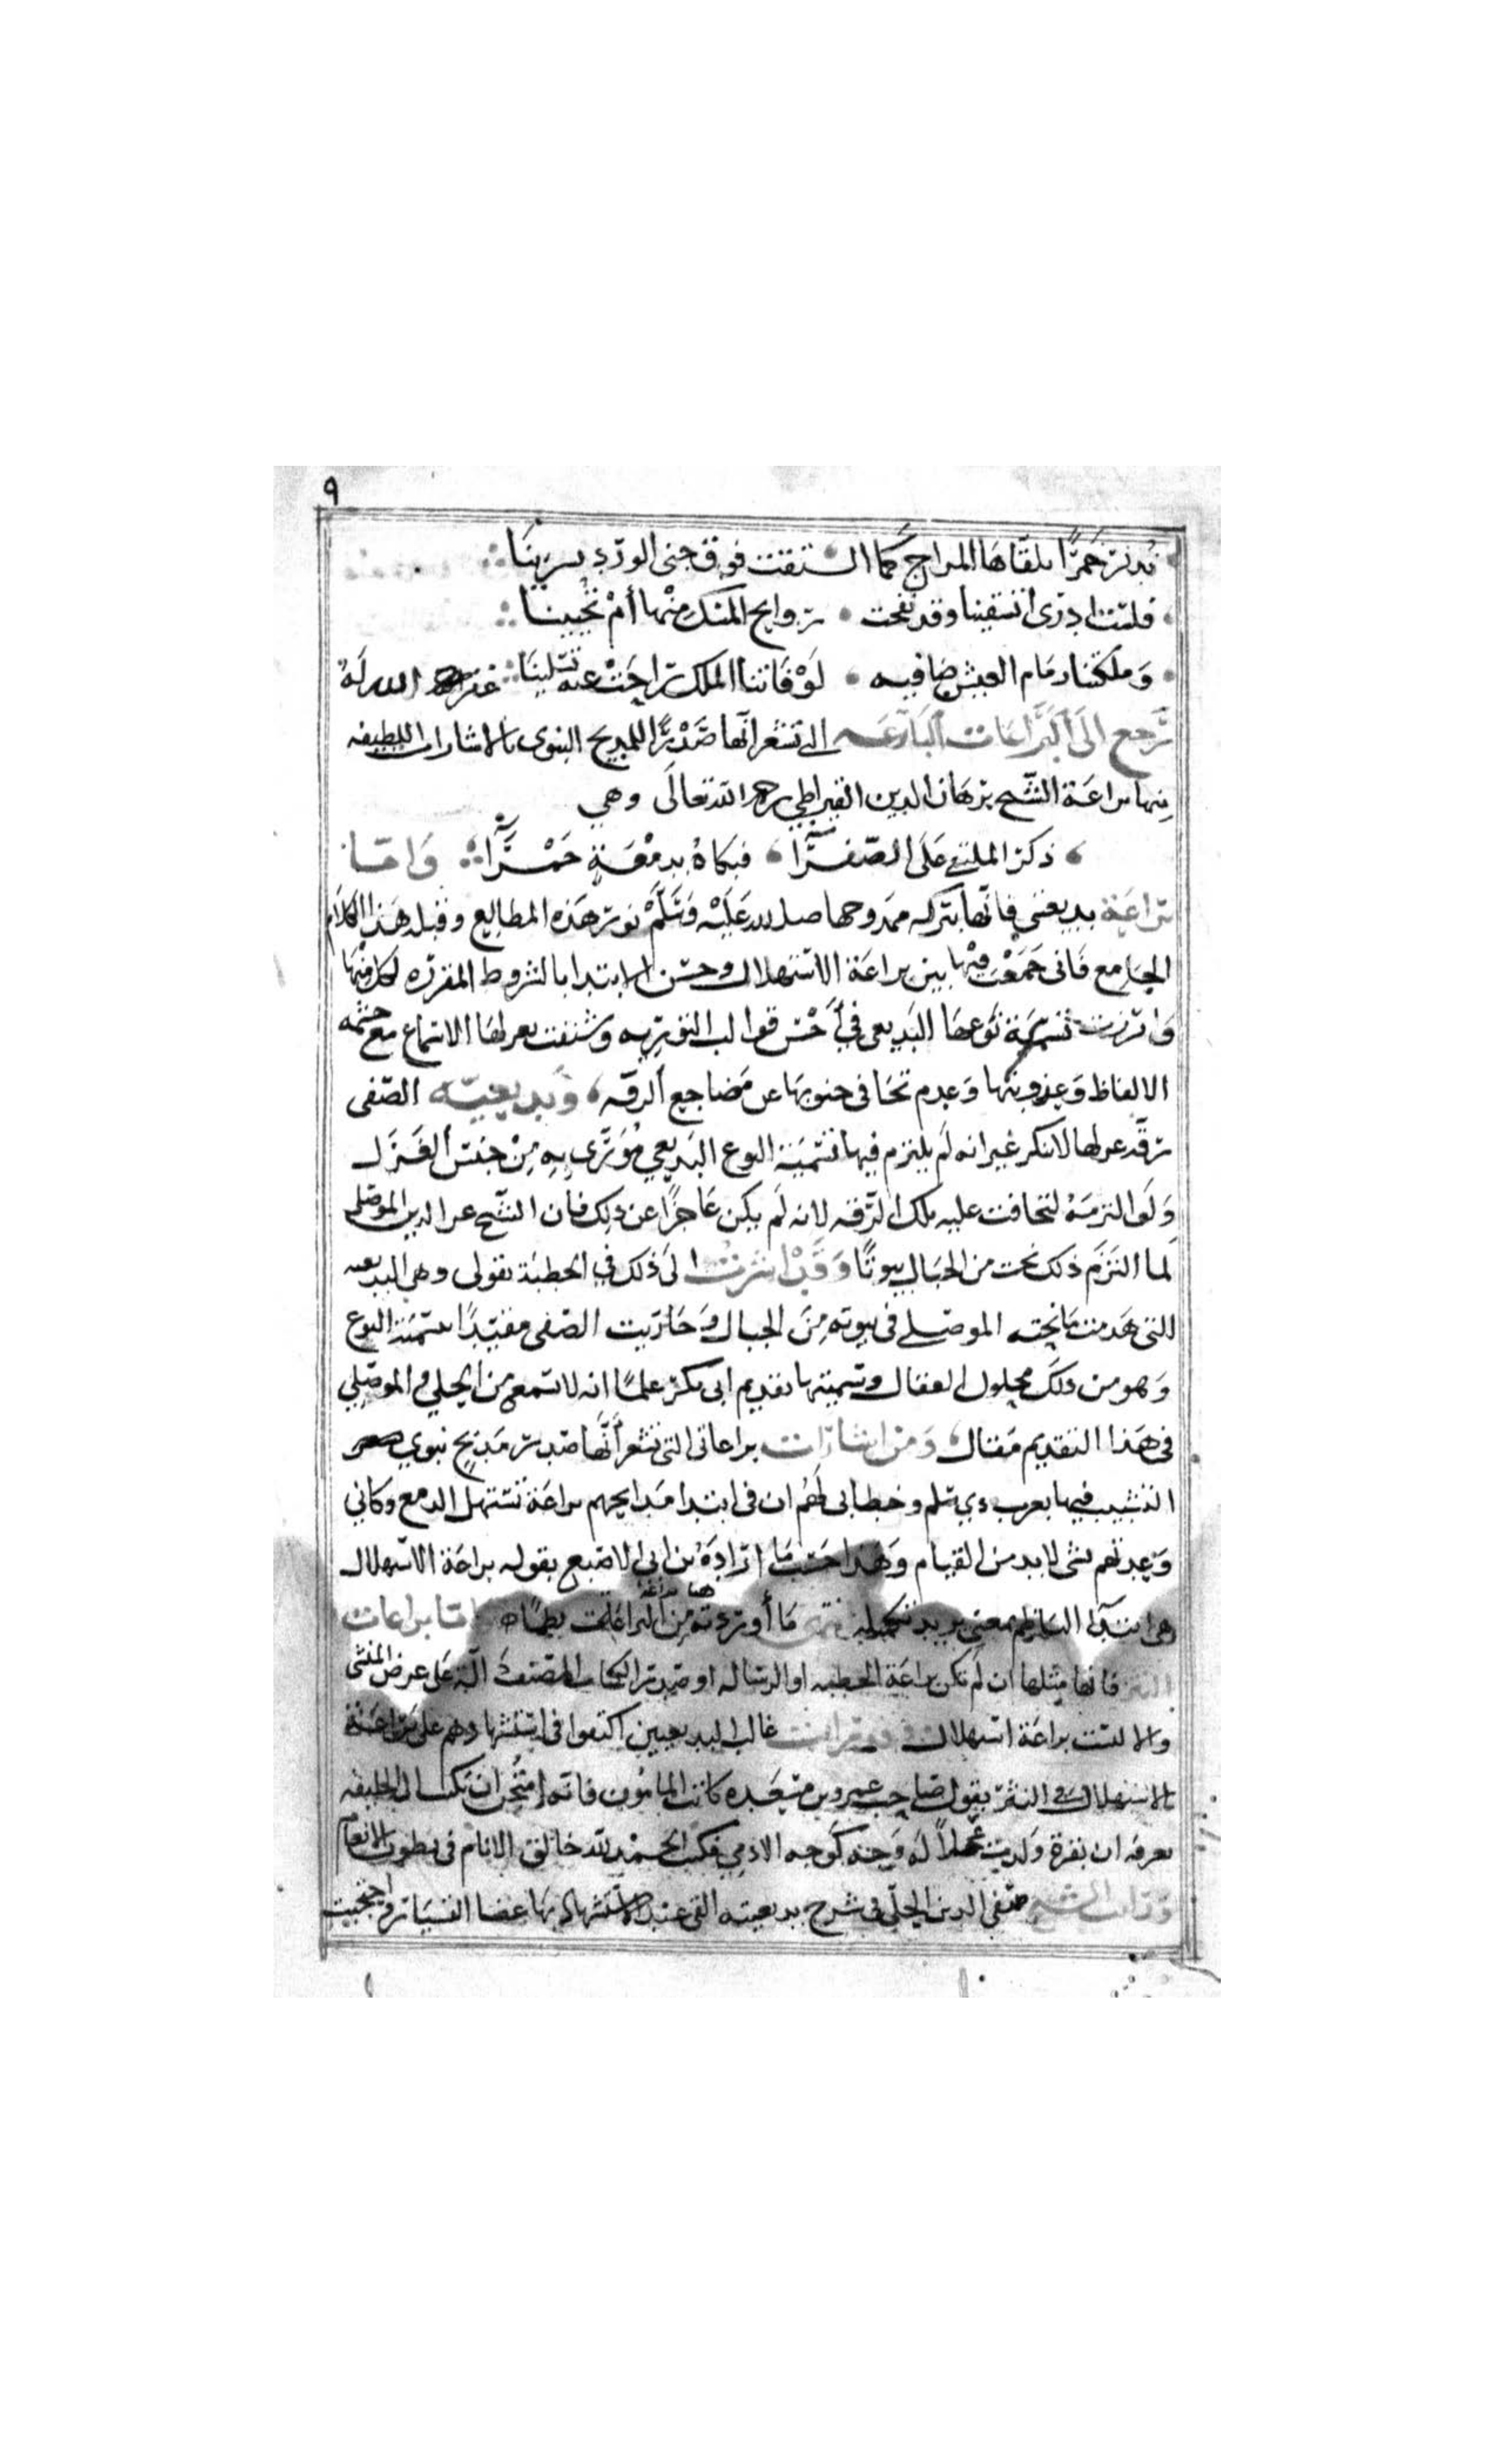 ٩
ندير خمرا تلقاها المزاج كما القت فوق جنى الورد نسرينا
فلست ادرى اتسقينا وقد نفحت روايح المسك منها أم تحيينا
وملكتنا زمام العيش صافيه لو فاتنا الملك راحت عنه تسلينا غفر الله له
نرجع الى البراعات البارعه التي تشعر انها صدر المديح النبوى بالاشارات اللطيفه
منها براعة الشيخ برهان الدين القيراطي رحمه الله تعالى وهي
ذكر الملتقى على الصفرا فبكاه بدمعة حمرا واما
براعة بديعيتي فانها ببركه ممدوحها صلى الله عليه وسلم نور هذه المطالع وقبله هذا الكلام
الجامع فانى جمعت فيها بين براعة الاستهلال وحسن الابتدا بالشروط المقرره لكل منها
وابرزت تسمية نوعها البديعى في أحسن قوالب التوريه وشنفت بغزلها الاسماع مع حشمه
الالفاظ وعذوبتها وعدم تجافى جنوبها عن مضاجع الرقه وبديعيه الصفى
رقة غزلها لا تنكر غير انه لم يلتزم فيها تسمية النوع البديعي مورى به من جنس الغزل
ولو التزمه لتجافت عليه تلك الرقه لانه لم يكن عاجزا عن ذلك فان الشيخ عز الدين الموصلى
لما التزم ذلك نحت من الجبال بيوتا وقد اشرت الى ذلك في الخطبة بقولى وهى البديعيه
التى هدمت ما نحته الموصلى فى بيوته من الجبال وجاريت الصفى مقيدا بتسمية النوع
وهو من ذلك محلول العقال وسميتها تقديم ابى بكر علما انه لا تسمع من الحلي والموصلي
فى هذا التقديم مقال ومن اشارات براعاتى التى تشعر أنها صدر مديح نبوي
التشبيب فيها بعرب ذي سلم وخطابى لهم ان فى ابتدا مدايحهم براعة تستهل الدمع وكاني
وعدتهم بشى لا بد من القيام وهذا حسب ما اراده ابن ابى الاصبع بقوله براعة الاستهلال
هى ابتدا الناظم بمعنى يريد تكميله ما أوردته هنا من البراعات نظما واما براعات
النثر فانها مثلها ان لم تكن براعة الخطبه او الرساله او صدر الكتاب المصنف دالة على غرض المنشى
والا ليست براعة استهلال ورايت غالب البديعيين اكتفوا فى استشهادهم على براعة
الاستهلال فى النثر بقول صاحب عمرو بن مسعده كاتب المامون فانه امتحن ان يكتب الى الخليفه
يعرفه ان بقرة ولدت عجلا له وجه كوجه الادمي فكتب الحمد لله خالق الانام فى بطون الانعام
وقال الشيخ صفى الدين الحلى فى شرح بديعيته القى عند الاستشهاد بها عصا التسيار واحتجبت